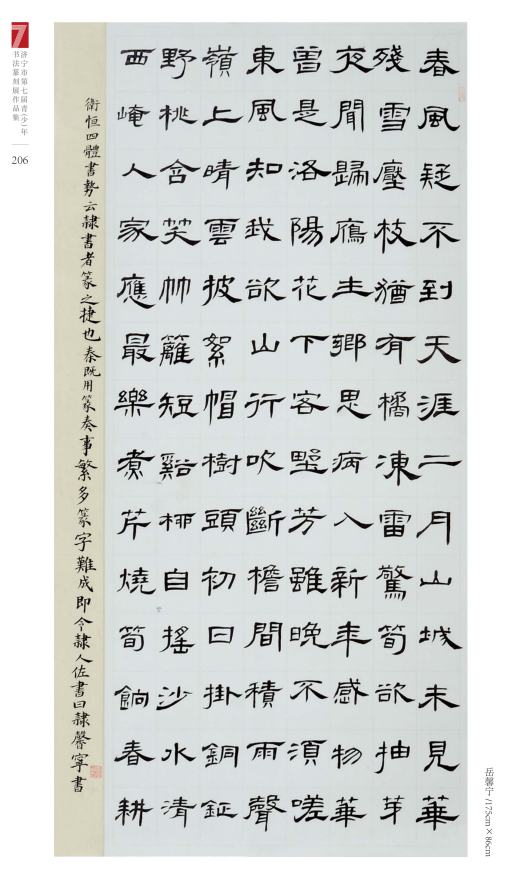 7
济宁市第七届青(少)年
书法篆刻展作品集
206
春風疑不到天涯二月山城未見華
殘雪壓枝猶有橘凍雷驚筍欲抽芽
夜聞歸鴈生鄉思病入新年感物華
曾是洛陽花下客野芳雖晚不須嗟
東風知我欲山行吹斷檐間積雨聲
嶺上晴雲披絮帽樹頭初日掛銅鉦
野桃含笑竹籬短谿柳自搖沙水清
西崦人家應最樂煮芹燒筍餉春耕
衛恒四體書勢云隸書者篆之捷也秦既用篆奏事繁多篆字難成即令隸人佐書曰隸馨寧書
岳馨宁/175cm×86cm